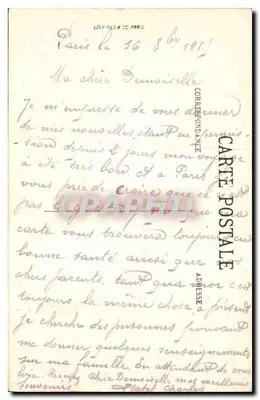 LÉVY FILS & Cie, PARIS.
Paris le 16 8bre 191
Ma chère Demoiselle
Je m'empresse de vous donner
de mes nouvelles, étant en permis-
sion depuis 2 jours mon voyage
a été très bon et à Paris
vous prie de croire que
pas
carte vous trouvera toujours en
bonne santé ainsi que vos
chers parents, tant qu'a moi c'est
toujours la même chose, à présent
je cherche des personnes pouvant
me donner quelques renseignements
sur ma famille. En attendant de vous
lire. Recevez Chère Demoiselle mes meilleurs
souvenirs
CORRESPONDANCE
CARTE POSTALE
ADRESSE